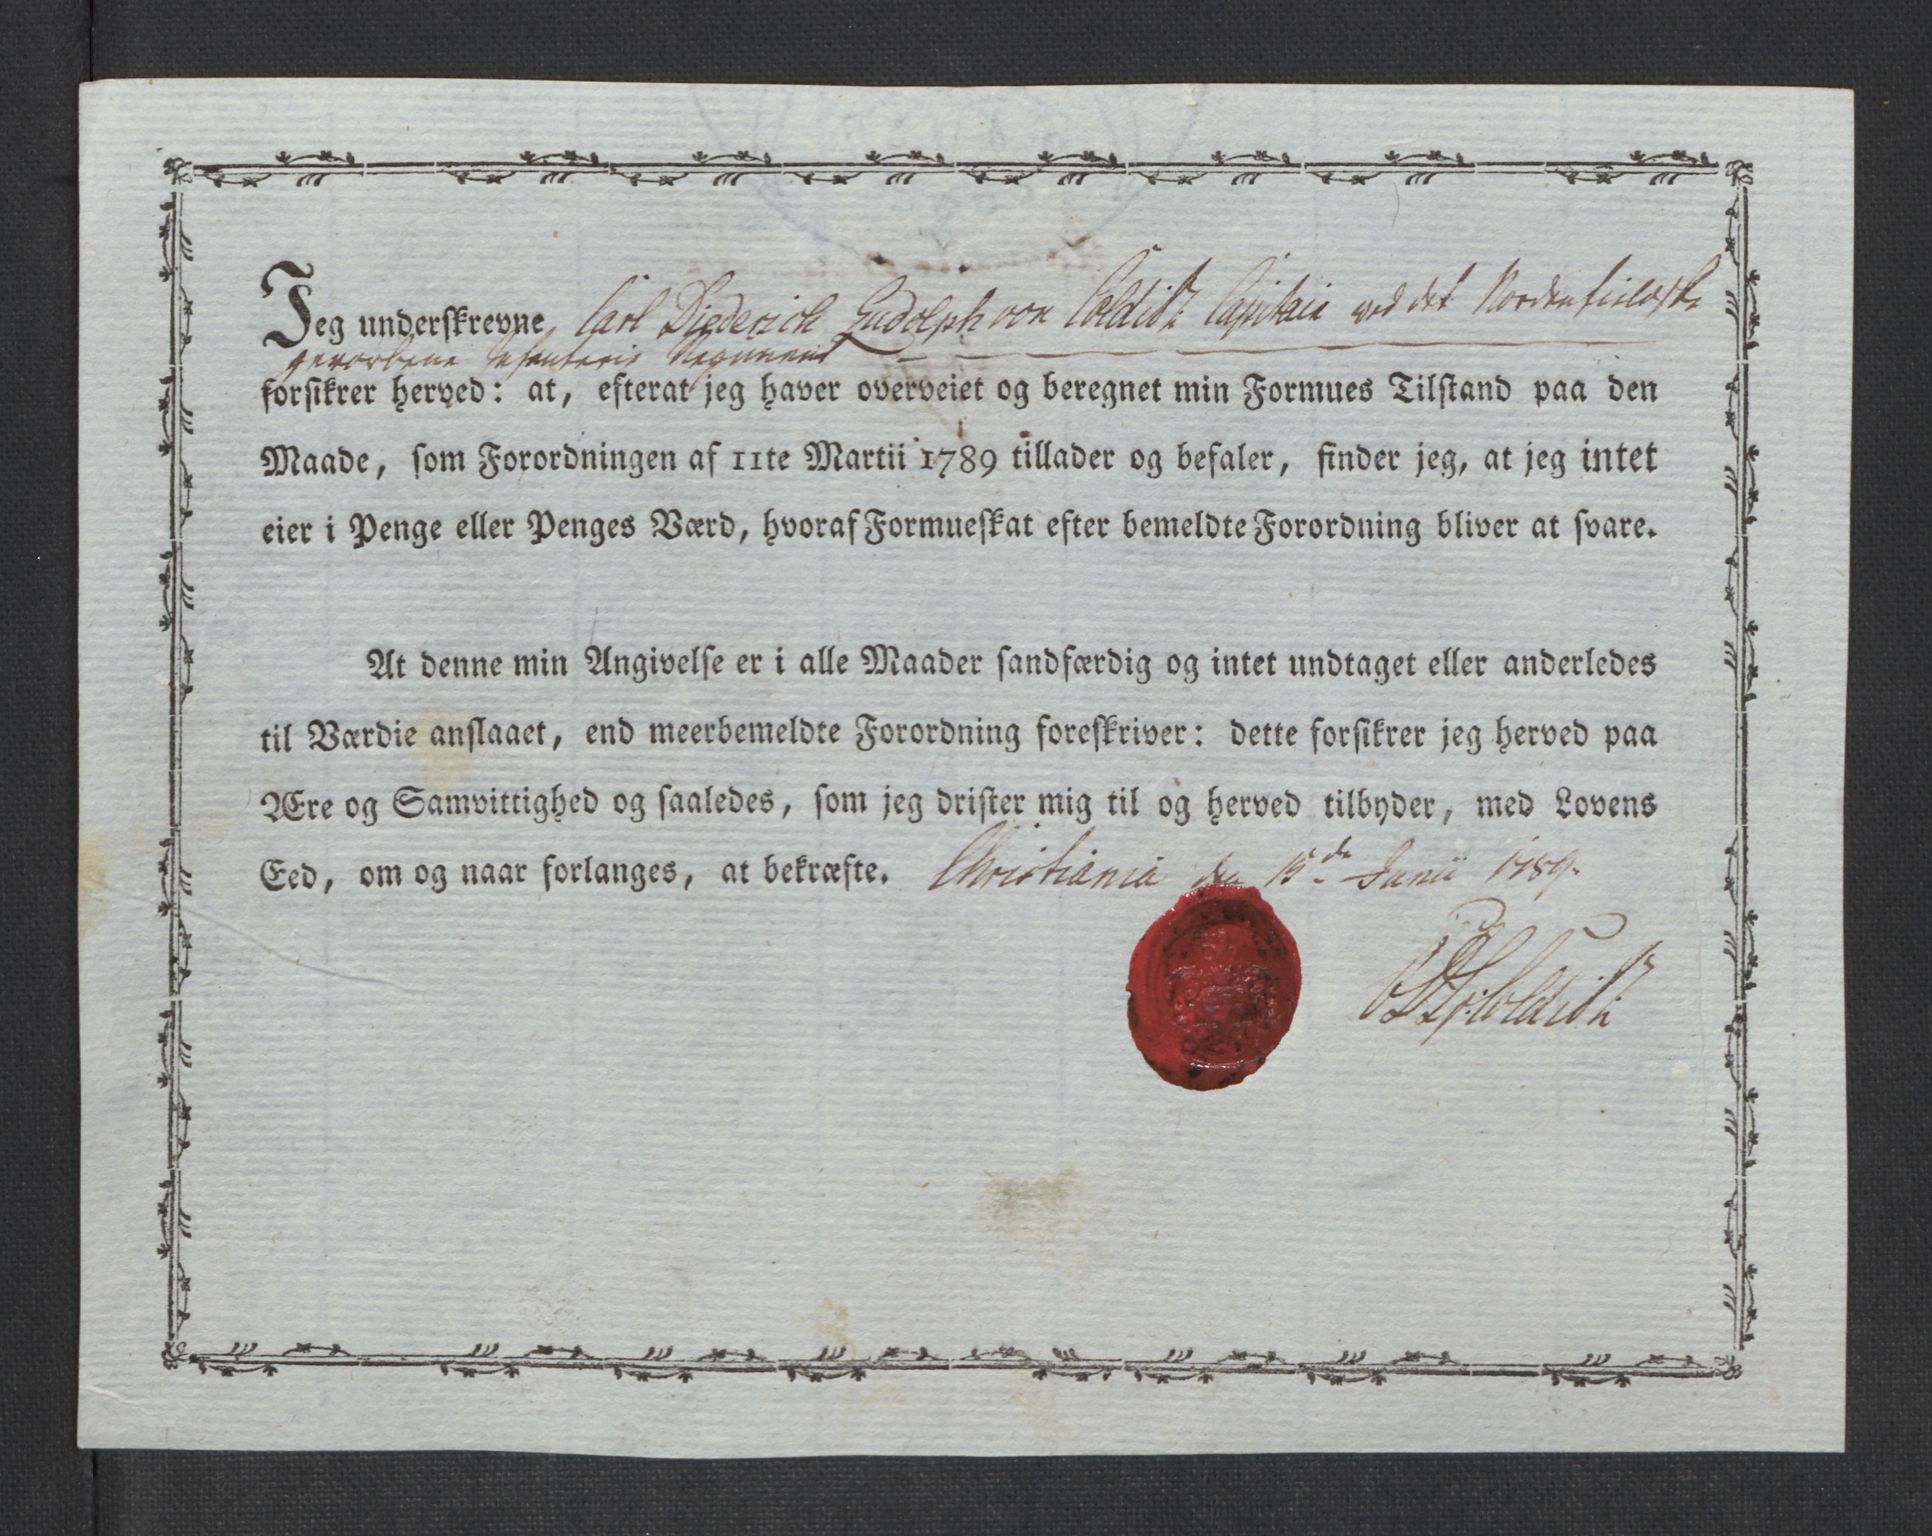 Jeg underskrevne, Carl Diederich Ludolph von Colditz Capitain ved det Nordenfieldske
gevorbene Infanterie Regiment
forsikrer herved: at, efterat jeg haver overveiet og beregnet min Formues Tilstand paa den
Maade, som Forordningen af 11te Martii 1789 tillader og befaler, finder jeg, at jeg intet
eier i Penge eller Penges Værd, hvoraf Formueskat efter bemeldte Forordning bliver at svare.
At denne min Angivelse er i alle Maader sandfærdig og intet undtaget eller anderledes
til Værdie anslaaet, end meerbemeldte Forordning foreskriver: dette forsikrer jeg herved paa
Ære og Samvittighed og saaledes, som jeg drister mig til og herved tilbyder, med Lovens
Eed, om og naar forlanges, at bekræfte. Christiania den 15de Junii 1789.
Colditz